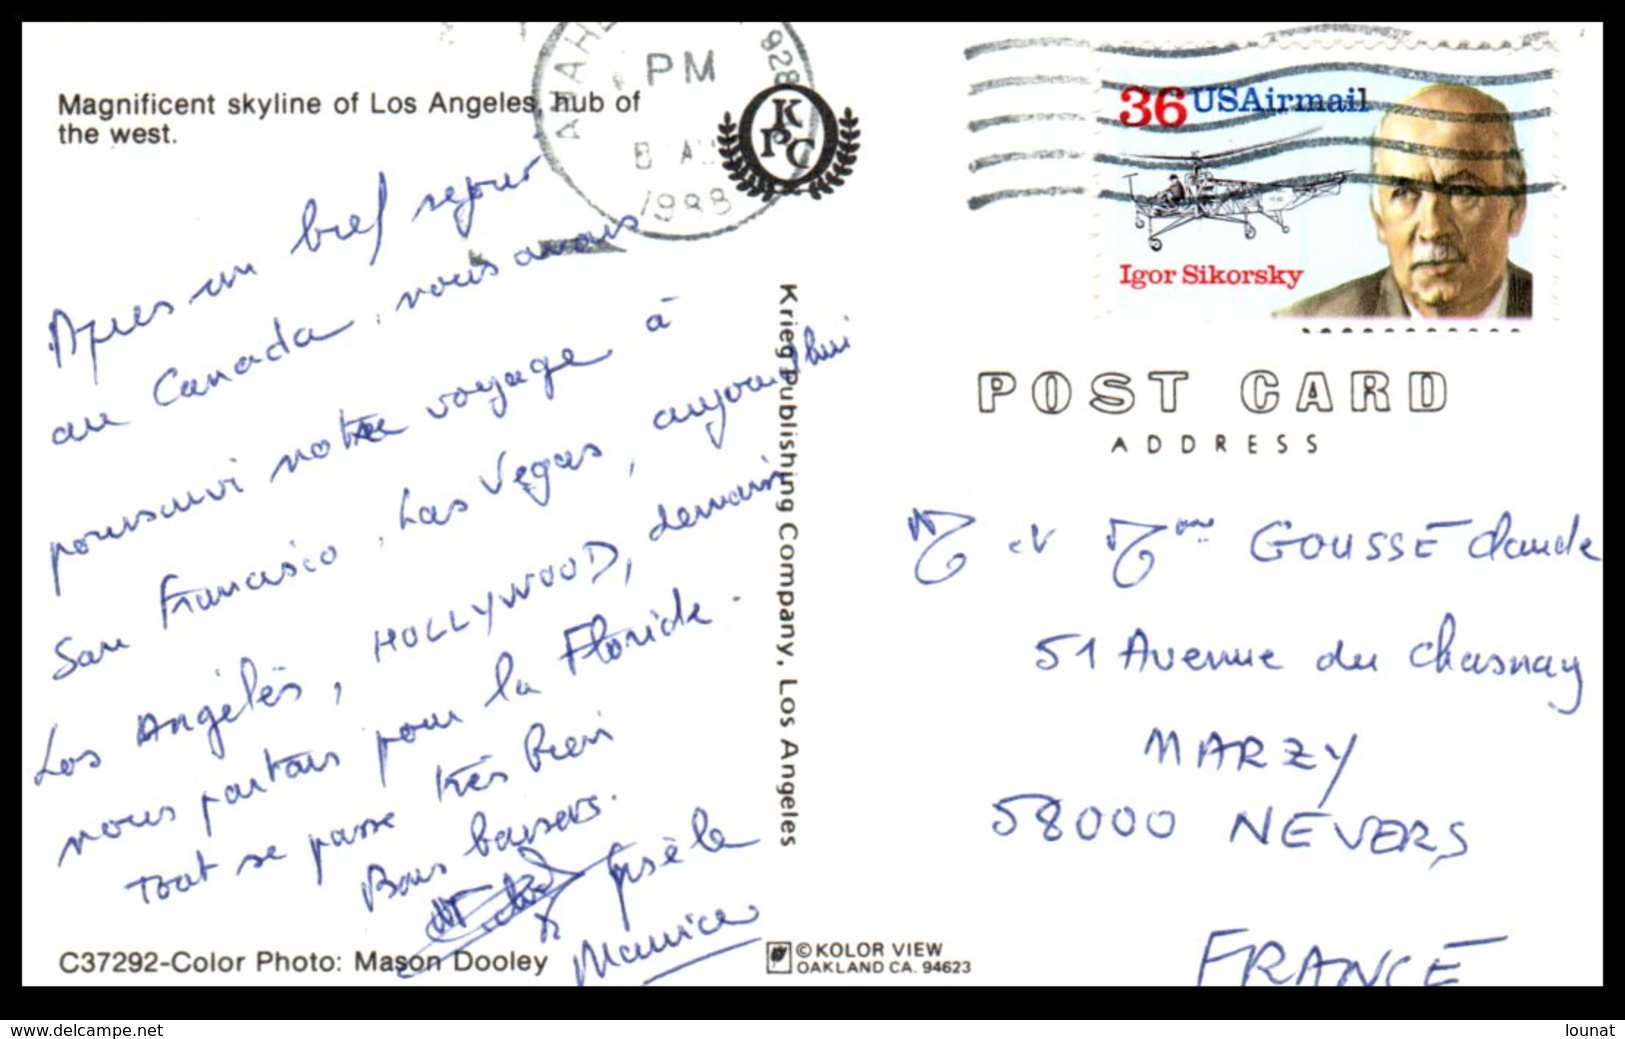 Magnificent skyline of Los Angeles, hub of
the west.
PM
8 AU
1988
928
KPC
36 USAirmail
Igor Sikorsky
POST CARD
ADDRESS
Après un bref sejour
au Canada, nous avons
poursuivi notre voyage à
San Francisco, Las Vegas, aujourd'hui
Los Angélès, HOLLYWOOD, demain
nous partons pour la Floride.
Tout se passe très bien
Bons baisers.
Gisèle
Maurice
Krieg Publishing Company, Los Angeles
M et Mme GOUSSE Claude
51 Avenue du Chasnay
MARZY
58000 NEVERS
FRANCE
C37292-Color Photo: Mason Dooley
© KOLOR VIEW
OAKLAND CA. 94623
www.delcampe.net
lounat